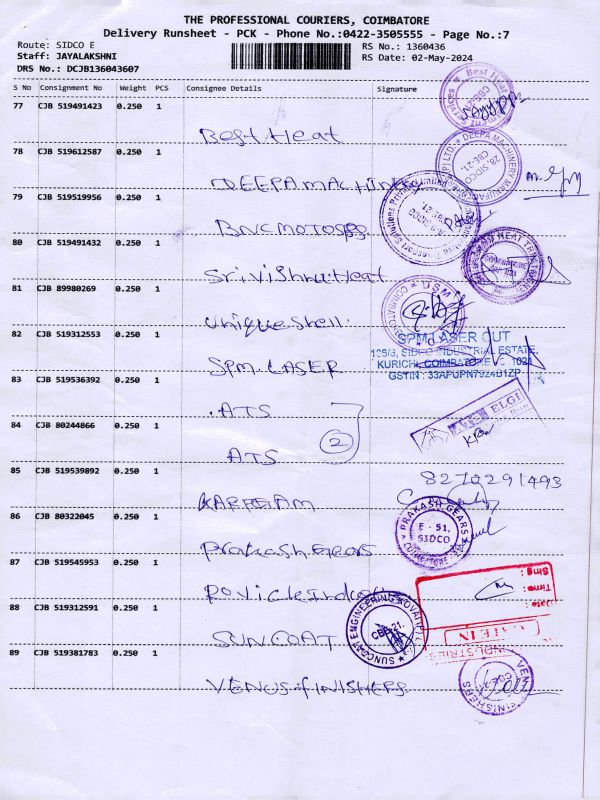 THE PROFESSIONAL COURIERS, COIMBATORE
Delivery Runsheet - PCK - Phone No.:0422-3505555 - Page No.:7
Route: SIDCO E
RS No.: 1360436
Staff: JAYALAKSHNI
RS Date: 02-May-2024
DRS No.: DCJB136043607
S No Consignment No Weight PCS Consignee Details Signature
77 CJB 519491423 0.250 1
Best Heat
78 CJB 519612587 0.250 1
DEEPA MACHINERY
DEEPA MACHINERY MANUFAC
28, SIDCO
CBE-21.
79 CJB 519519956 0.250 1
BNC MOTORS
80 CJB 519491432 0.250 1
Sri. Vishnu Heat
81 CJB 89980269 0.250 1
Unique Shell.
82 CJB 519312553 0.250 1
SPM LASER CUT
SIDCO INDUSTRIAL ESTATE,
KURICHI, COIMBATORE
GSTIN : 33APUPN7924B1ZP
SPM. LASER
83 CJB 519536392 0.250 1
ATS
ELGI
84 CJB 80244866 0.250 1
2
ATS
85 CJB 519539892 0.250 1
8270291493
86 CJB 80322045 0.250 1
PRAKASH GEARS
E - 51,
SIDCO
Prakash Gears
87 CJB 519545953 0.250 1
Sing
Time :
Date :
88 CJB 519312591 0.250 1
SUNCOAT ENGINEERING KOVAI P LTD
CBE-21.
SUNCOAT
89 CJB 519381783 0.250 1
INDUSTRIES
VENUS FINISHERS
VENUS FINISHERS